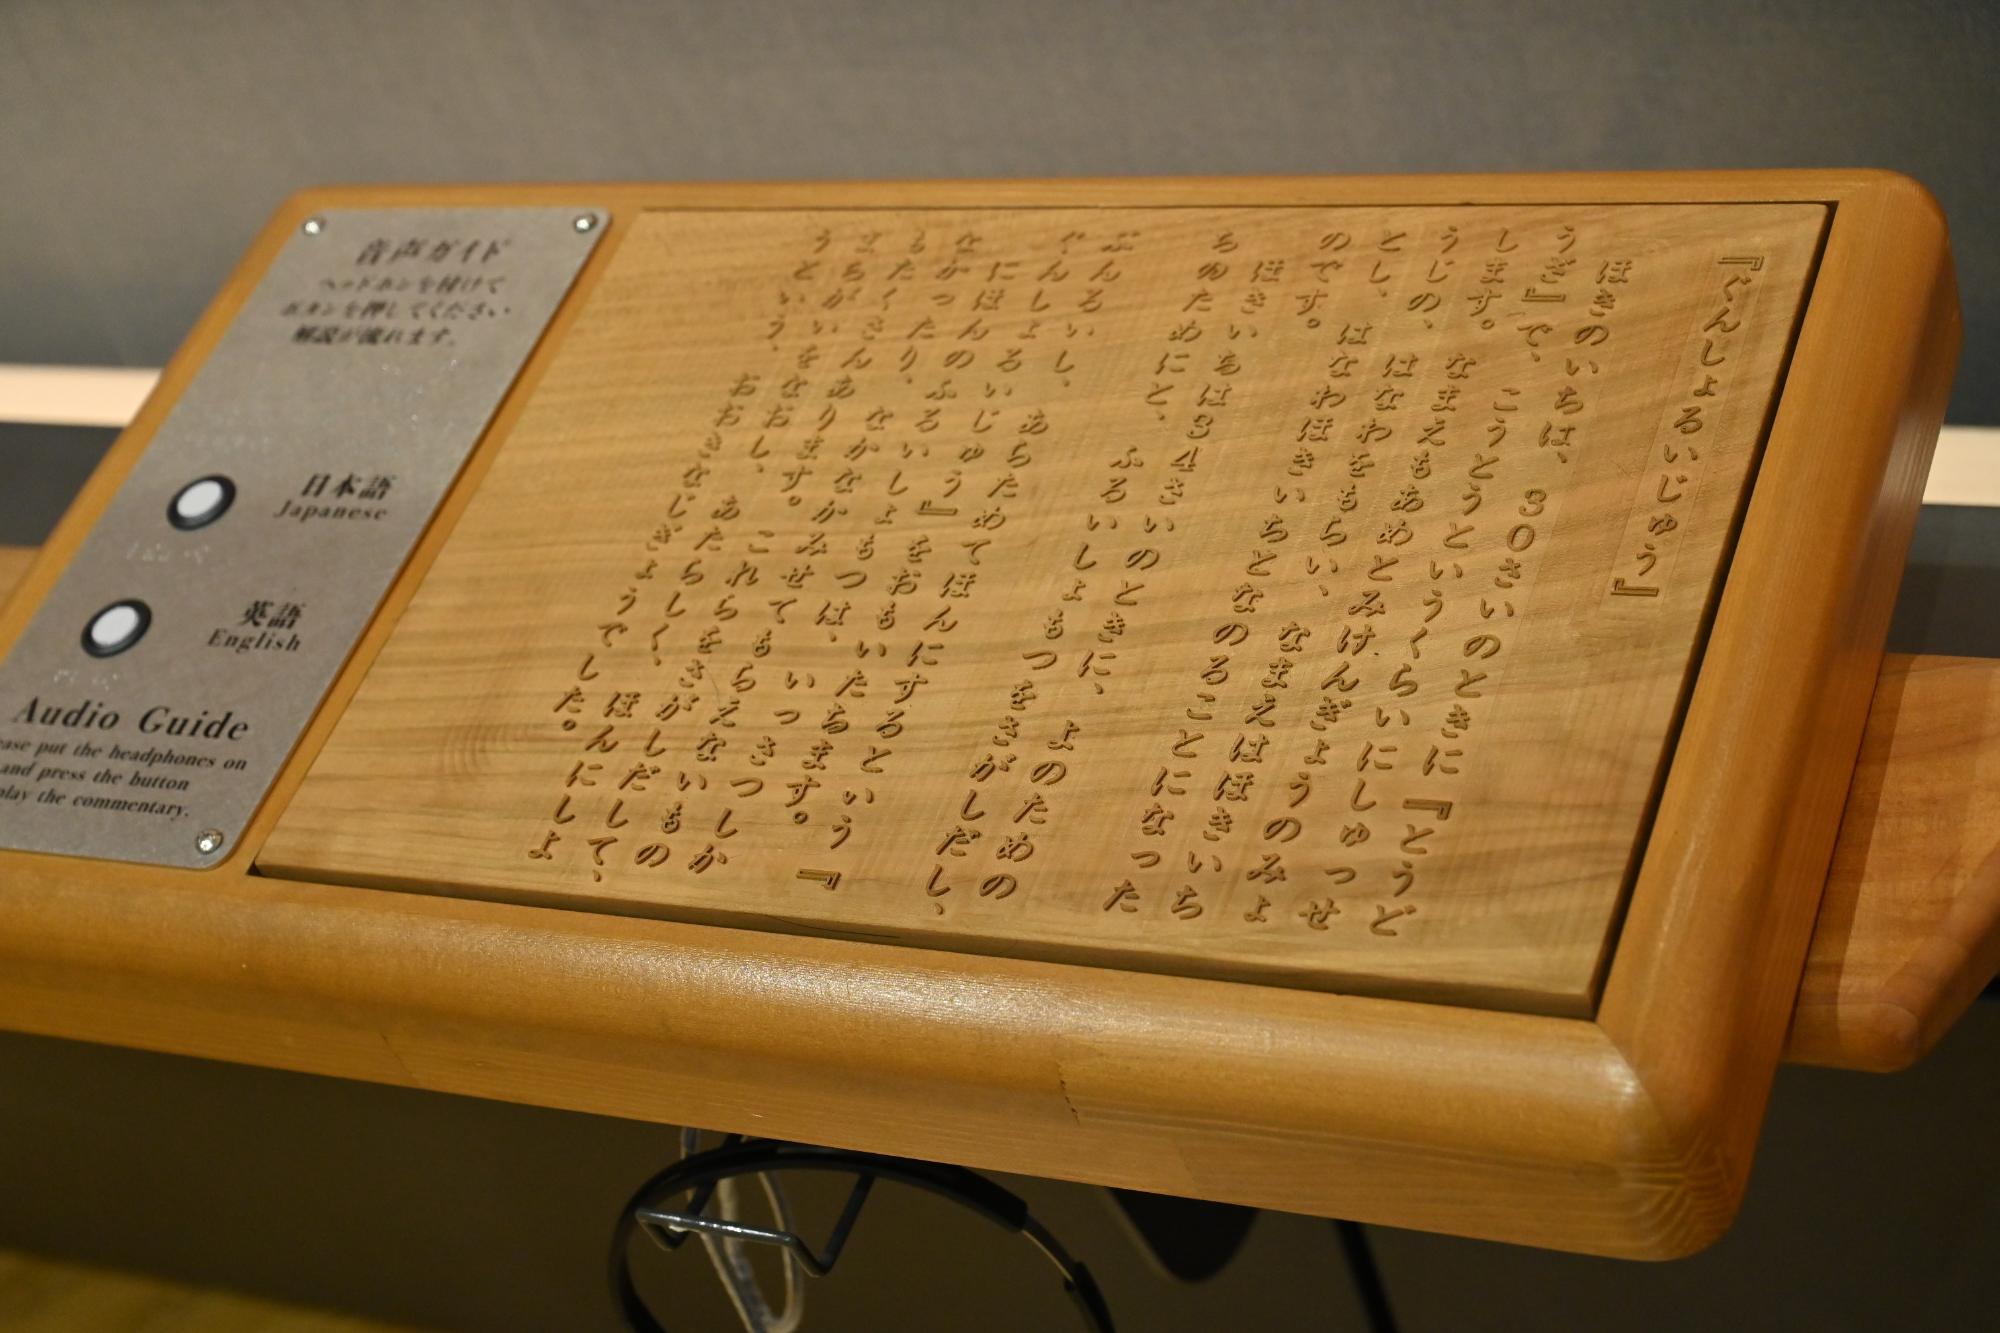 『ぐんしょるいじゅう』
ほきのいちは、30さいのときに『とうど
うざ』で、こうとうというくらいにしゅっせ
します。なまえもあめとみけんぎょうのみょ
うじの、はなわをもらい、なまえはほきいち
とし、はなわほきいちとなのることになった
のです。
ほきいちは34さいのときに、よのための
ちのためにと、ふるいしょもつをさがしだし、
ぶんるいし、あらためてほんにするという『
ぐんしょるいじゅう』をおもいたちます。
にほんのふるいしょもつは、いっさつしか
なかったり、なかなかみせてもらえないもの
もたくさんあります。これらをさがしだして、
まちがいをなおし、あたらしく、ほんにしよ
うという、おおきなじぎょうでした。
音声ガイド
ヘッドホンを付けて
ボタンを押してください
解説が流れます。
日本語
Japanese
英語
English
Audio Guide
put the headphones on
and press the button
play the commentary.